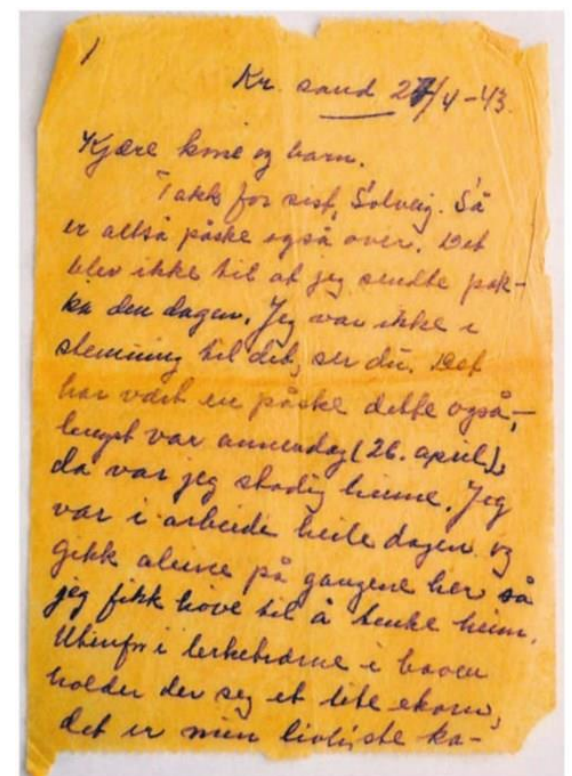 1
Kr. sand 27/4-43.
Kjære kone og barn.
Takk for sist, Solveig. Så
er altså påske også over. Det
blev ikke til at jeg sendte pak-
ka den dagen. Jeg var ikke i
stemning til det, ser du. Det
har vært en påske dette også,-
lengst var annendag (26. april),
da var jeg stadig hjemme. Jeg
var i arbeide heile dagen og
gikk aleine på gangene her så
jeg fikk høve til å tenke heim.
Utenfor i lerketrærne i haven
holder der seg et lite ekorn,
det er min livligste ka-